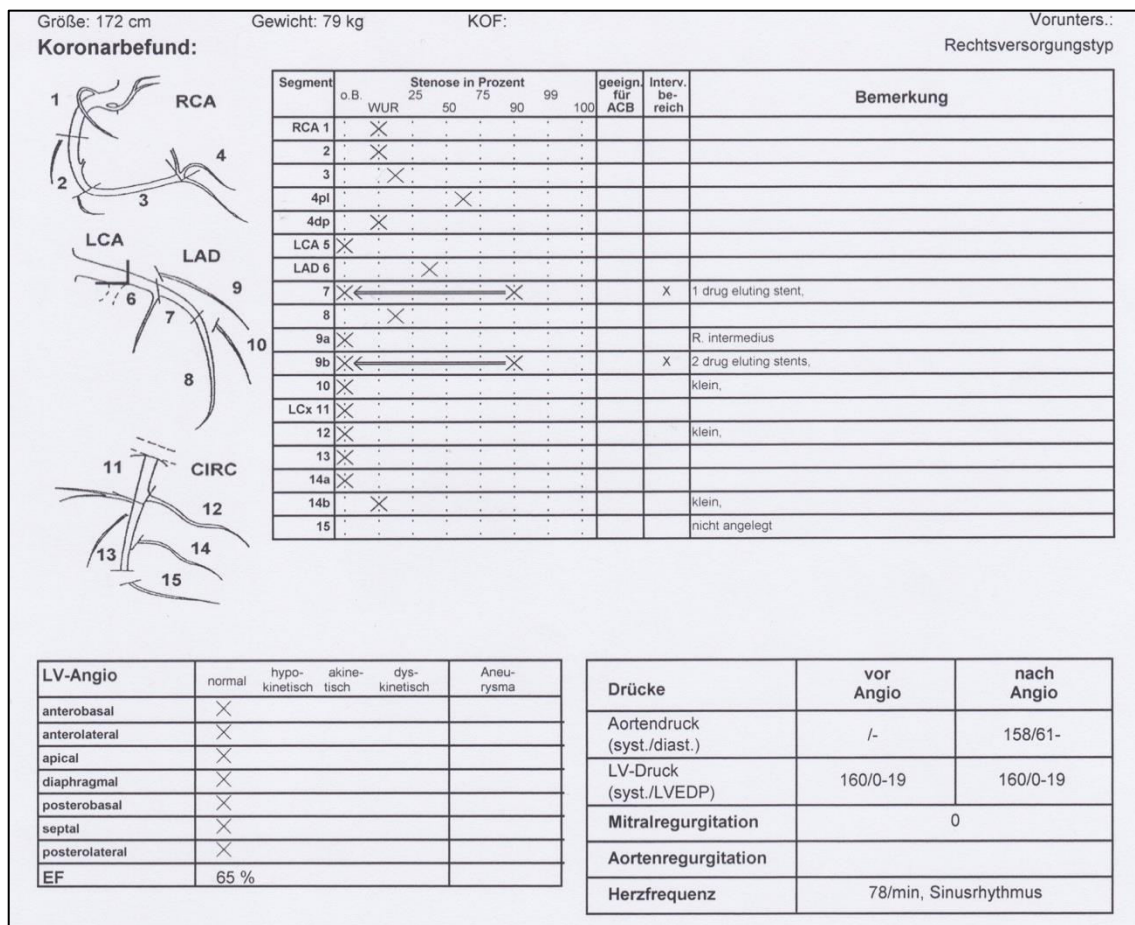 Größe: 172 cm Gewicht: 79 kg KOF: Vorunters.:
Koronarbefund: Rechtsversorgungstyp
1 RCA
2 3 4
LCA LAD
6 7 8 9 10
11 CIRC
12
13 14
15
Segment Stenose in Prozent geeign. für ACB Interv. be- reich Bemerkung
o.B. WUR 25 50 75 90 99 100
RCA 1 X
2 X
3 X
4pl X
4dp X
LCA 5 X
LAD 6 X
7 X X X 1 drug eluting stent,
8 X
9a X R. intermedius
9b X X X 2 drug eluting stents,
10 X klein,
LCx 11 X
12 X klein,
13 X
14a X
14b X klein,
15 nicht angelegt
LV-Angio normal hypo- kinetisch akine- tisch dys- kinetisch Aneu- rysma
anterobasal X
anterolateral X
apical X
diaphragmal X
posterobasal X
septal X
posterolateral X
EF 65 %
Drücke vor Angio nach Angio
Aortendruck (syst./diast.) /- 158/61-
LV-Druck (syst./LVEDP) 160/0-19 160/0-19
Mitralregurgitation 0
Aortenregurgitation
Herzfrequenz 78/min, Sinusrhythmus